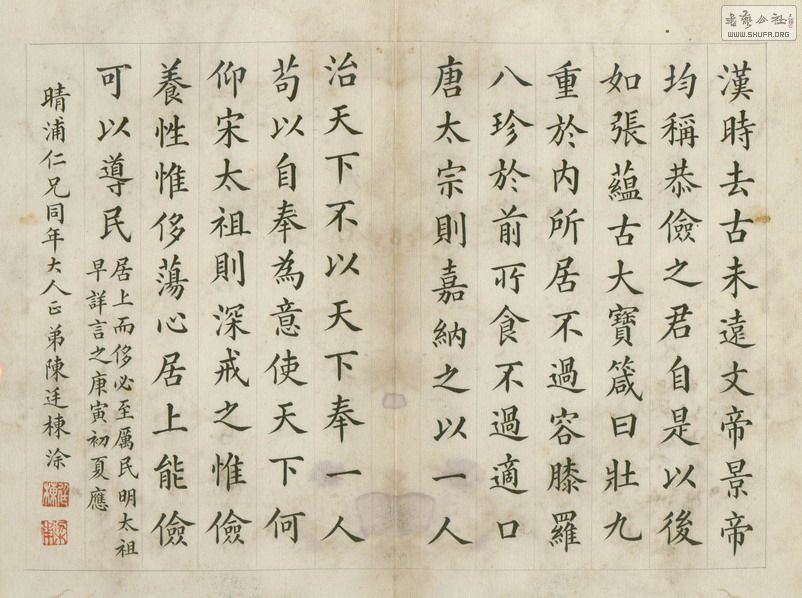 漢時去古未遠文帝景帝
均稱恭儉之君自是以後
如張蘊古大寶箴曰壯九
重於內所居不過容膝羅
八珍於前所食不過適口
唐太宗則嘉納之以一人
治天下不以天下奉一人
苟以自奉為意使天下何
仰宋太祖則深戒之惟儉
養性惟侈蕩心居上能儉
可以導民
居上而侈必至厲民明太祖
早詳言之庚寅初夏應
晴浦仁兄同年大人正弟陳廷棟涂
WWW.SHUFA.ORG